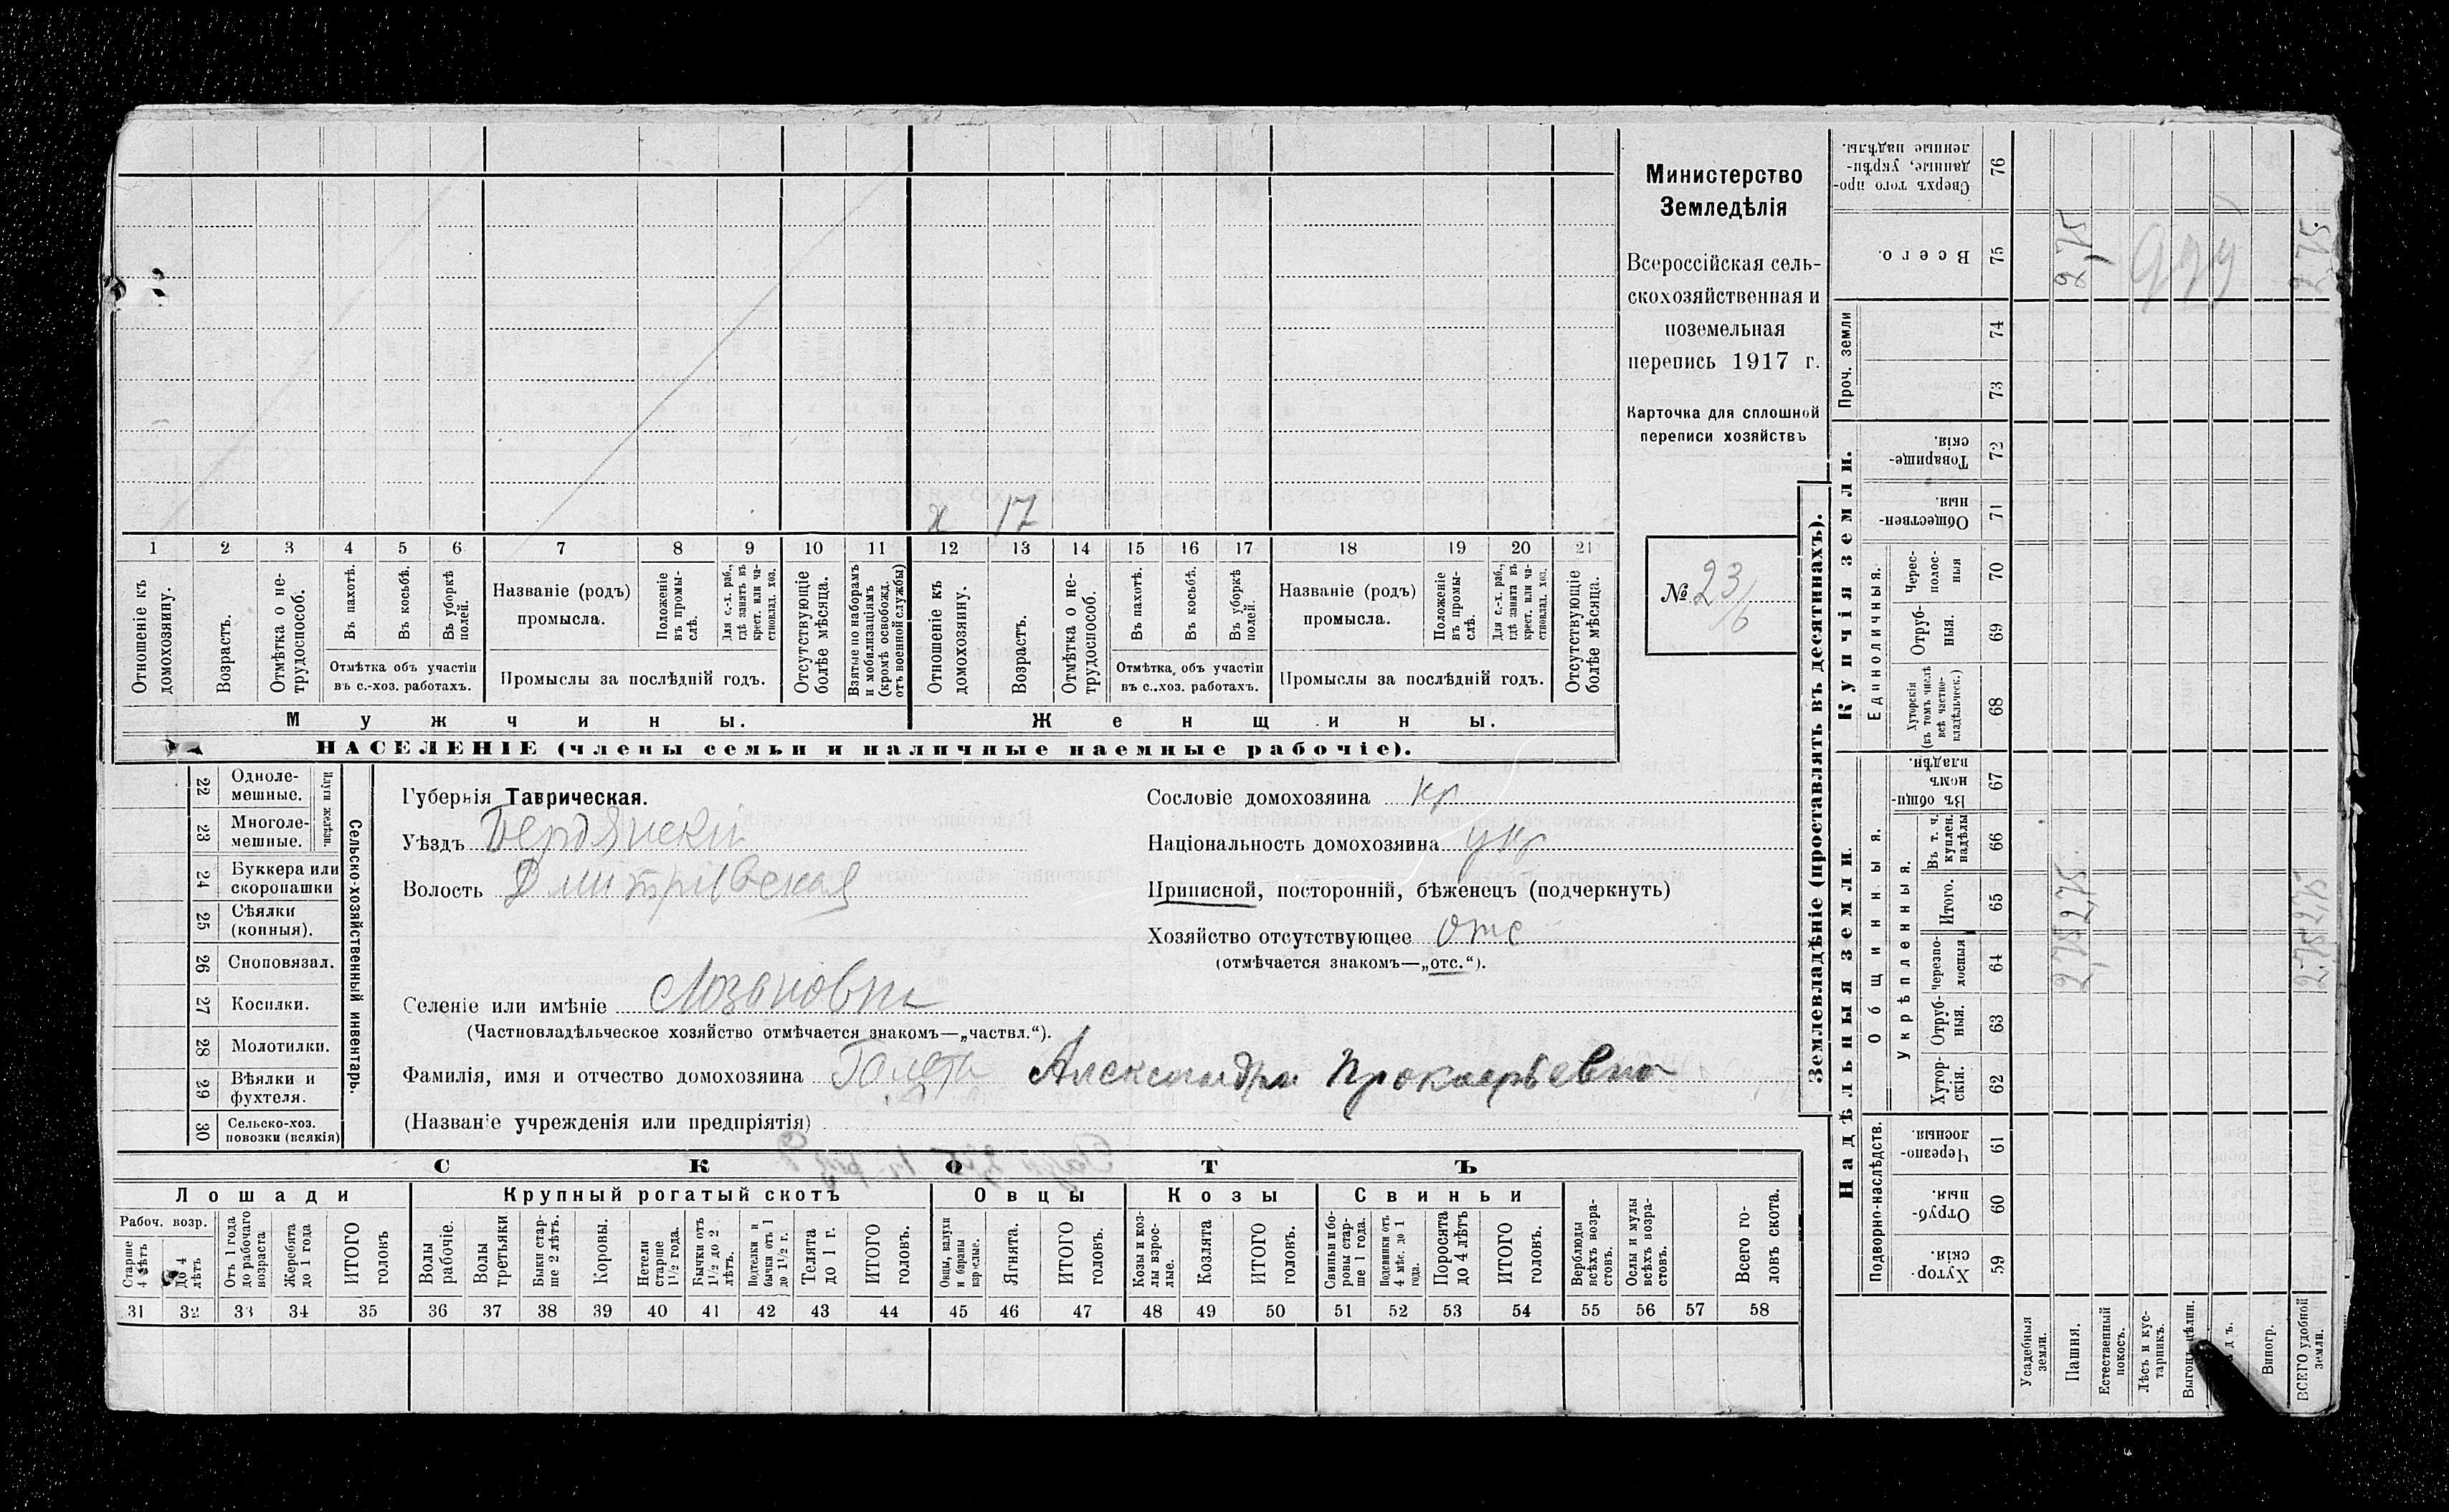 Министерство
Земледѣлія
Всероссійская сель-
скохозяйственная и
поземельная
перепись 1917 г.
Карточка для сплошной
переписи хозяйствъ
№ 23/6
х 17
1 2 3 4 5 6 7 8 9 10 11 12 13 14 15 16 17 18 19 20 21
Отношеніе къ домохозяину.
Возрастъ.
Отмѣтка о не-трудоспособ.
Въ пахотѣ.
Въ косьбѣ.
Въ уборкѣ полей.
Отмѣтка объ участіи
въ с.-хоз. работахъ.
Названіе (родъ)
промысла.
Положеніе въ промы-слѣ.
Для с.-х. раб., гдѣ занятъ въ крест. или ча-стновлад. хоз.
Промыслы за послѣдній годъ.
Отсутствующіе болѣе мѣсяца.
Взятые по наборамъ и мобилизаціямъ (кромѣ освобожд. отъ военной службы)
Отношеніе къ домохозяину.
Возрастъ.
Отмѣтка о не-трудоспособ.
Въ пахотѣ.
Въ косьбѣ.
Въ уборкѣ полей.
Отмѣтка объ участіи
въ с.-хоз. работахъ.
Названіе (родъ)
промысла.
Положеніе въ промы-слѣ.
Для с.-х. раб., гдѣ занята въ крест. или ча-стновлад. хоз.
Промыслы за послѣдній годъ.
Отсутствующіе болѣе мѣсяца.
Мужчины. Женщины.
НАСЕЛЕНІЕ (члены семьи и наличные наемные рабочіе).
Сельско-хозяйственный инвентарь.
Плуги желѣзн.
22 Одноле-мешные.
23 Многоле-мешные.
24 Буккера или скоропашки
25 Сѣялки (конныя).
26 Сноповязал.
27 Косилки.
28 Молотилки.
29 Вѣялки и фухтеля.
30 Сельско-хоз. повозки (всякія)
Губернія Таврическая.
Уѣздъ Бердянскій
Волость Дмитрівская
Селеніе или имѣніе Лозановка
(Частновладѣльческое хозяйство отмѣчается знакомъ—„частвл.“).
Фамилія, имя и отчество домохозяина Александра Прокофьевна
(Названіе учрежденія или предпріятія)
Сословіе домохозяина кр
Національность домохозяина укр
Приписной, посторонній, бѣженецъ (подчеркнуть)
Хозяйство отсутствующее отс
(отмѣчается знакомъ—„отс.“).
СКОТЪ
Лошади Крупный рогатый скотъ Овцы Козы Свиньи
Рабоч. возр.
Старше 4 лѣтъ
до 4 лѣтъ
Отъ 1 года до рабочаго возраста
Жеребята до 1 года
ИТОГО головъ
Волы рабочіе.
Волы третьяки
Быки стар-ше 2 лѣтъ.
Коровы.
Нетели старше 1½ года.
Бычки отъ 1½ до 2 лѣтъ.
Подтелки и бычки отъ 1 до 1½ г.
Телята до 1 г.
ИТОГО головъ.
Овцы, валухи и бараны взрослые.
Ягнята.
ИТОГО головъ.
Козы и коз-лы взрос-лые.
Козлята
ИТОГО головъ.
Свиньи и бо-ровы стар-ше 1 года.
Подсвинки отъ 4 мѣс. до 1 года.
Поросята до 4 лѣтъ
ИТОГО головъ.
Верблюды всѣхъ возра-стовъ.
Ослы и мулы всѣхъ возра-стовъ.
Всего го-ловъ скота.
31 32 33 34 35 36 37 38 39 40 41 42 43 44 45 46 47 48 49 50 51 52 53 54 55 56 57 58
Землевладѣніе (проставлять въ десятинахъ).
Купчія земли.
Надѣльныя земли.
Сверхъ того про-данные, укрѣп-ленные надѣлы. 76
Всего. 75
Проч. земли 74 73
Товарище-скія. 72
Обществен-ныя. 71
Единоличныя.
Черес-полос-ныя 70
Отруб-ныя. 69
Хуторскія (въ томъ числѣ всѣ частно-владѣльческ.) 68
Общинныя.
Въ общи-номъ владѣн. 67
Укрѣпленныя.
Въ т. ч. куплен. надѣлы 66
Итого. 65
черезпо-лосныя 64
Отруб-ныя. 63
Хутор-скія. 62
Подворно-наслѣдств.
Черезпо-лосныя. 61
Отруб-ныя. 60
Хутор-скія. 59
Усадебныя земли.
Пашня. 2,75 2,75 2,75
Естественный покосъ.
Лѣсъ и кус-тарникъ.
Виногр.
ВСЕГО удобной земли. 2,75 2,75 2,75